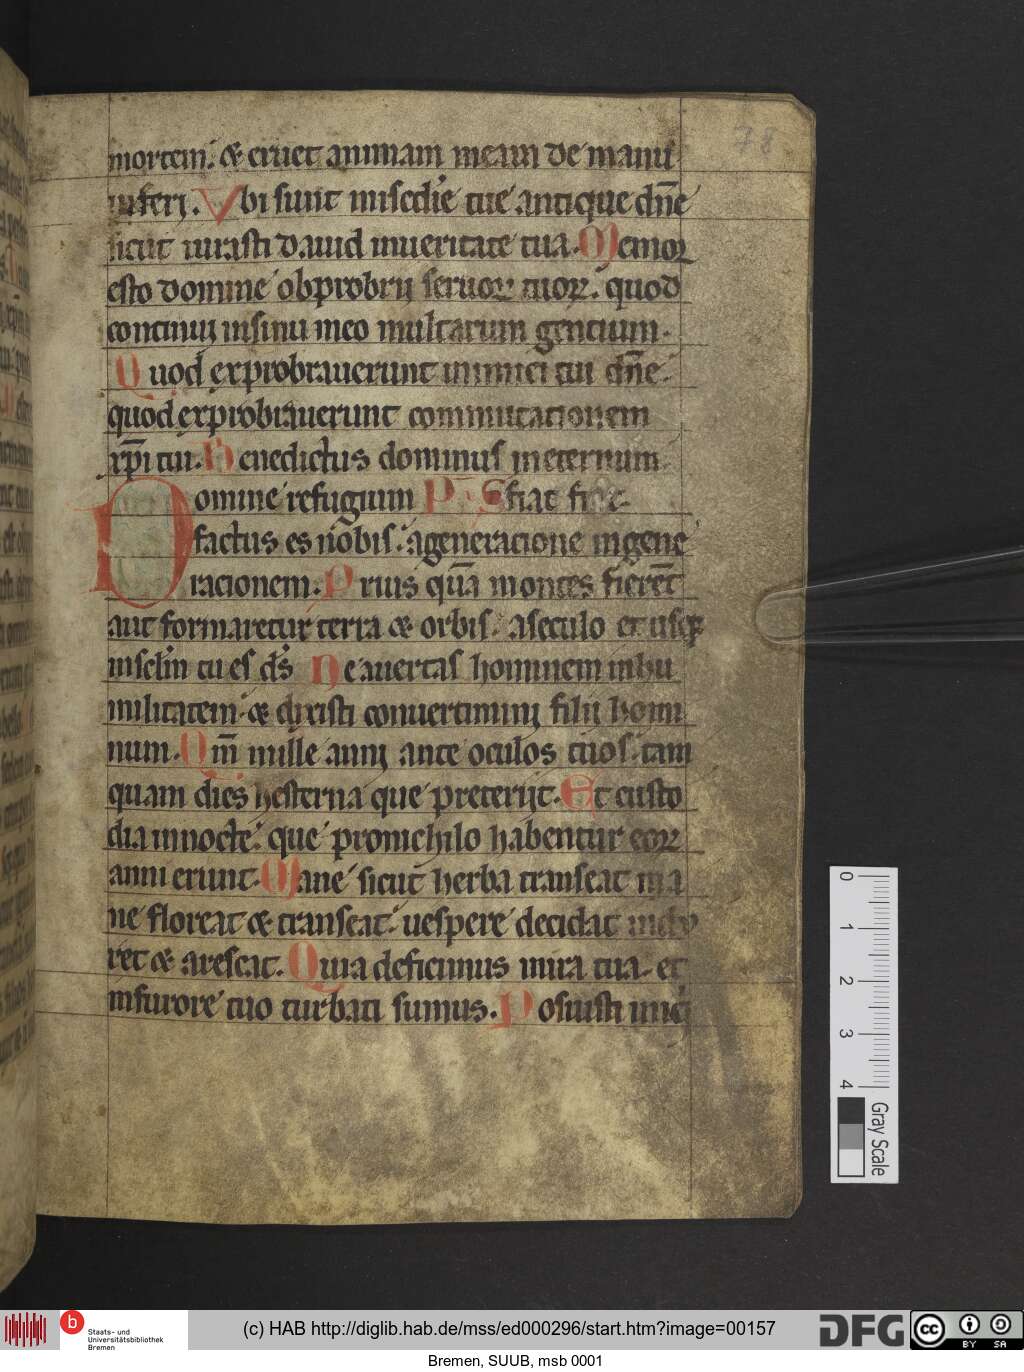 78
mortem. & eruet animam meam de manu
inferi. Vbi sunt misc̄die tue antique dn̄e
sicut iurasti dauid inueritate tua. Memoꝝ
esto domine obprobrij seruoꝝ tuoꝝ. quod
continuj insinu meo multarum gentium.
Quod exprobrauerunt inimici tui dn̄e.
quod exprobrauerunt commutationem
xp̄i tui. Benedictus dominus ineternum
omine refugium Ps fiat fiat.
D factus es nobis. ageneracione ingene
racionem. Prius quā montes fierēt
aut formaretur terra & orbis. aseculo et usqꝫ
insclm̄ tu es ds̄ Ne auertas hominem inhu
militatem. & dixisti conuertiminj filii homi
num. Qm̄ mille annj ante oculos tuos. tam
quam dies hesterna que preterijt. Et custo
dia innocte. que pronichilo habentur eoꝝ
anni erunt. Mane sicut herba transeat ma
ne floreat & transeat. uespere decidat indu
ret & arescat. Quia defecimus inira tua. et
infurore tuo turbati sumus. Posuisti iniq̇
0 1 2 3 4
Gray Scale
b
Staats- und
Universitätsbibliothek
Bremen
(c) HAB http://diglib.hab.de/mss/ed000296/start.htm?image=00157
DFG
cc BY SA
Bremen, SUUB, msb 0001